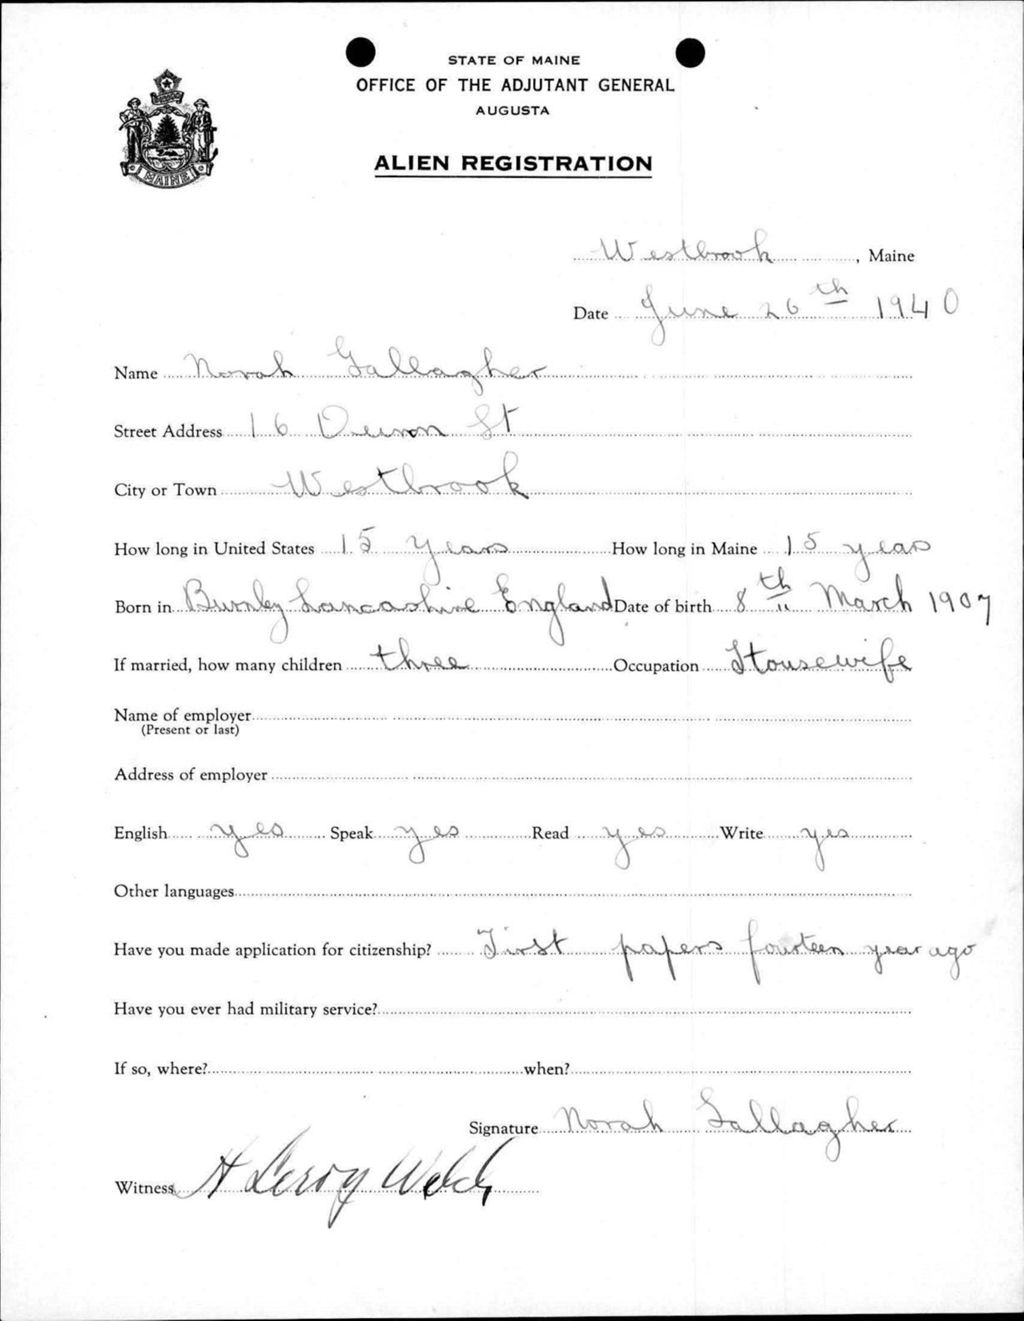 STATE OF MAINE
OFFICE OF THE ADJUTANT GENERAL
AUGUSTA
ALIEN REGISTRATION
MAINE
Westbrook, Maine
Date June 26th 1940
Name Norah Gallagher
Street Address 16 St
City or Town Westbrook
How long in United States 15 years How long in Maine 15 years
Born in Burnley Lancashire England Date of birth 8th March 1907
If married, how many children three Occupation Housewife
Name of employer
(Present or last)
Address of employer
English yes Speak yes Read yes Write yes
Other languages
Have you made application for citizenship? First papers fourteen year ago
Have you ever had military service?
If so, where? when?
Signature Norah Gallagher
Witness H Leroy Welch